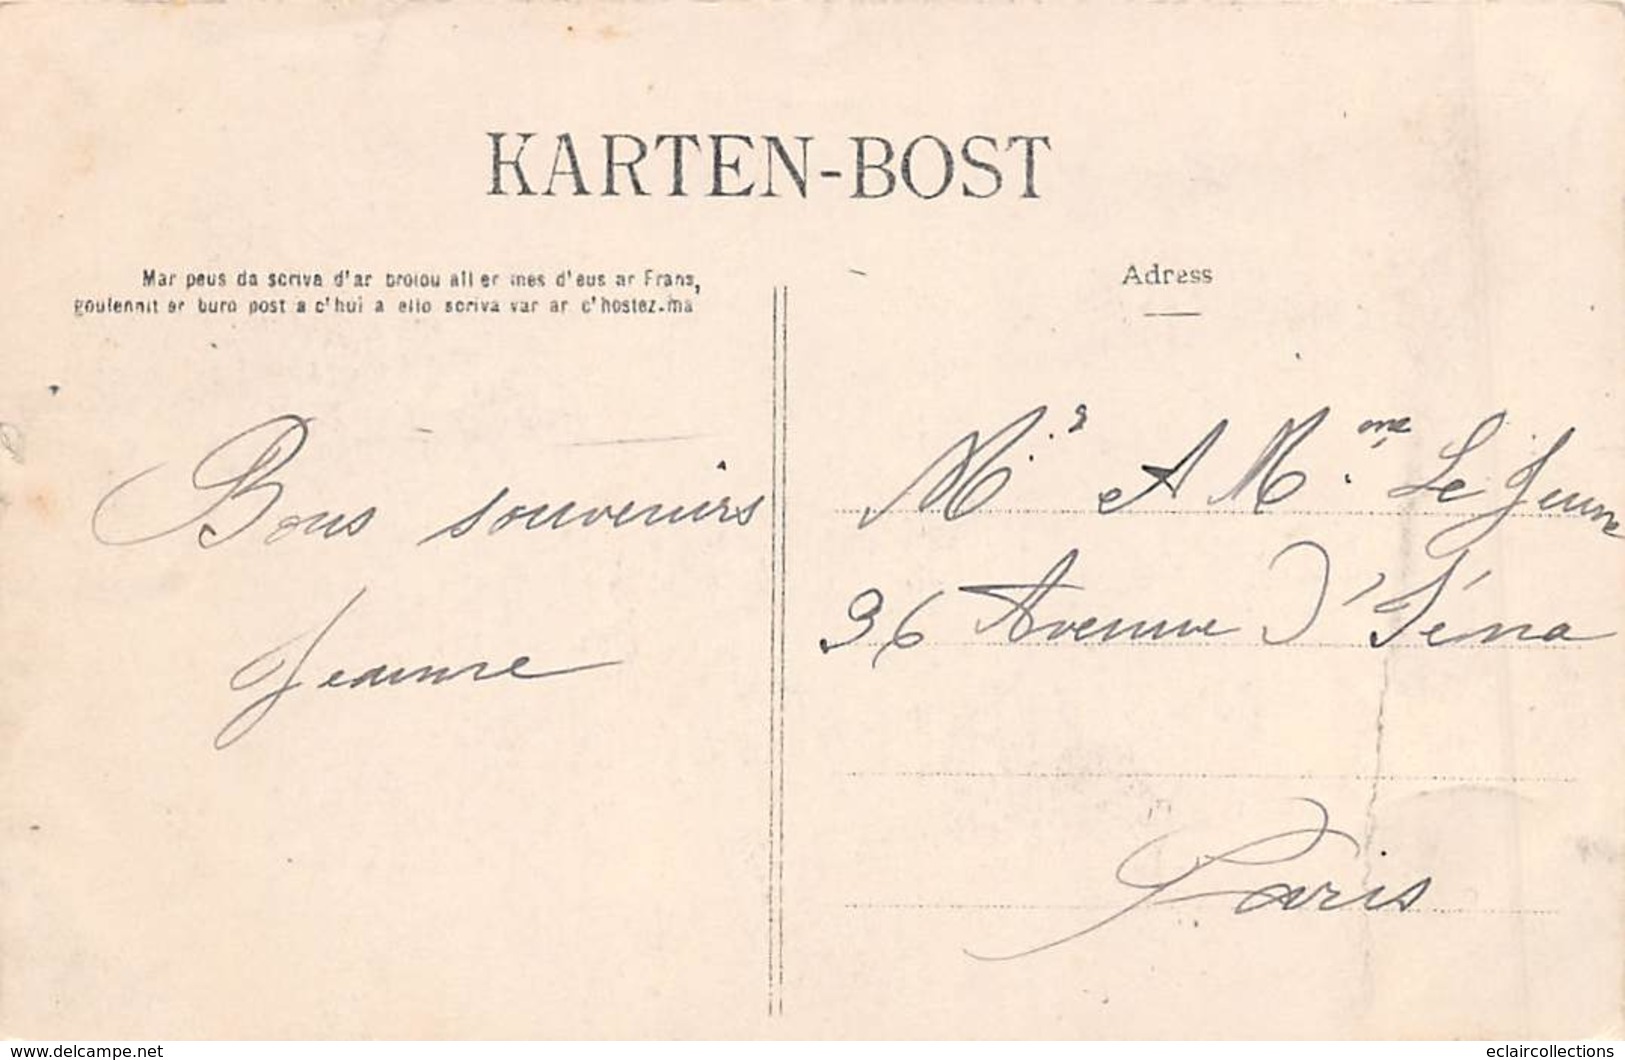 KARTEN-BOST
Mar peus da scriva d'ar broiou all er mes d'eus ar Frans,
goulennit er buro post a c'hui a ello scriva var ar c'hostez-ma
Adress
Bons souvenirs
Jeanne
Mr et Mme Le Jeune
36 Avenue d'Iéna
Paris
www.delcampe.net
eclaircollections